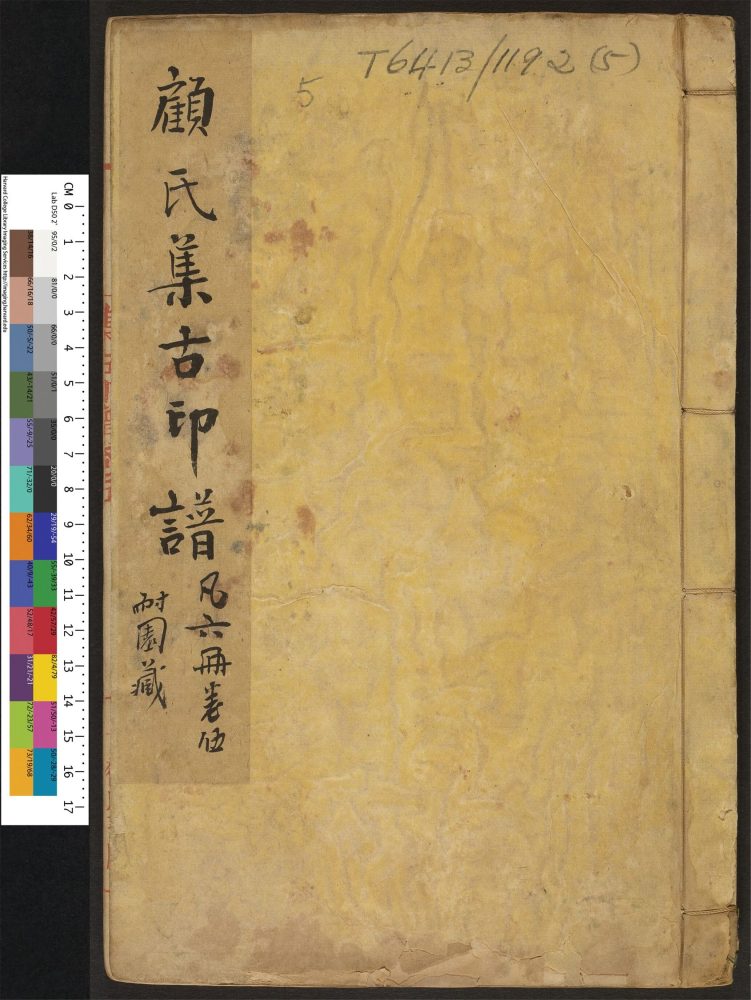 T6413/1192 (5)
5
顧氏集古印譜
凡六冊卷伍
耐園藏
CM 0 1 2 3 4 5 6 7 8 9 10 11 12 13 14 15 16 17
Harvard College Library Imaging Services http://imaging.harvard.edu
Lab D50 2˚ 95/0/2 81/0/0 66/0/0 51/0/1 35/0/0 20/0/0 29/19/-54 55/-39/33 42/57/29 82/4/79 51/50/-13 50/-28/-29
38/14/16 66/16/18 50/-5/-22 43/-14/21 55/-9/-25 71/-32/0 62/34/60 40/9/-43 52/48/17 31/21/-21 72/-23/57 73/19/68